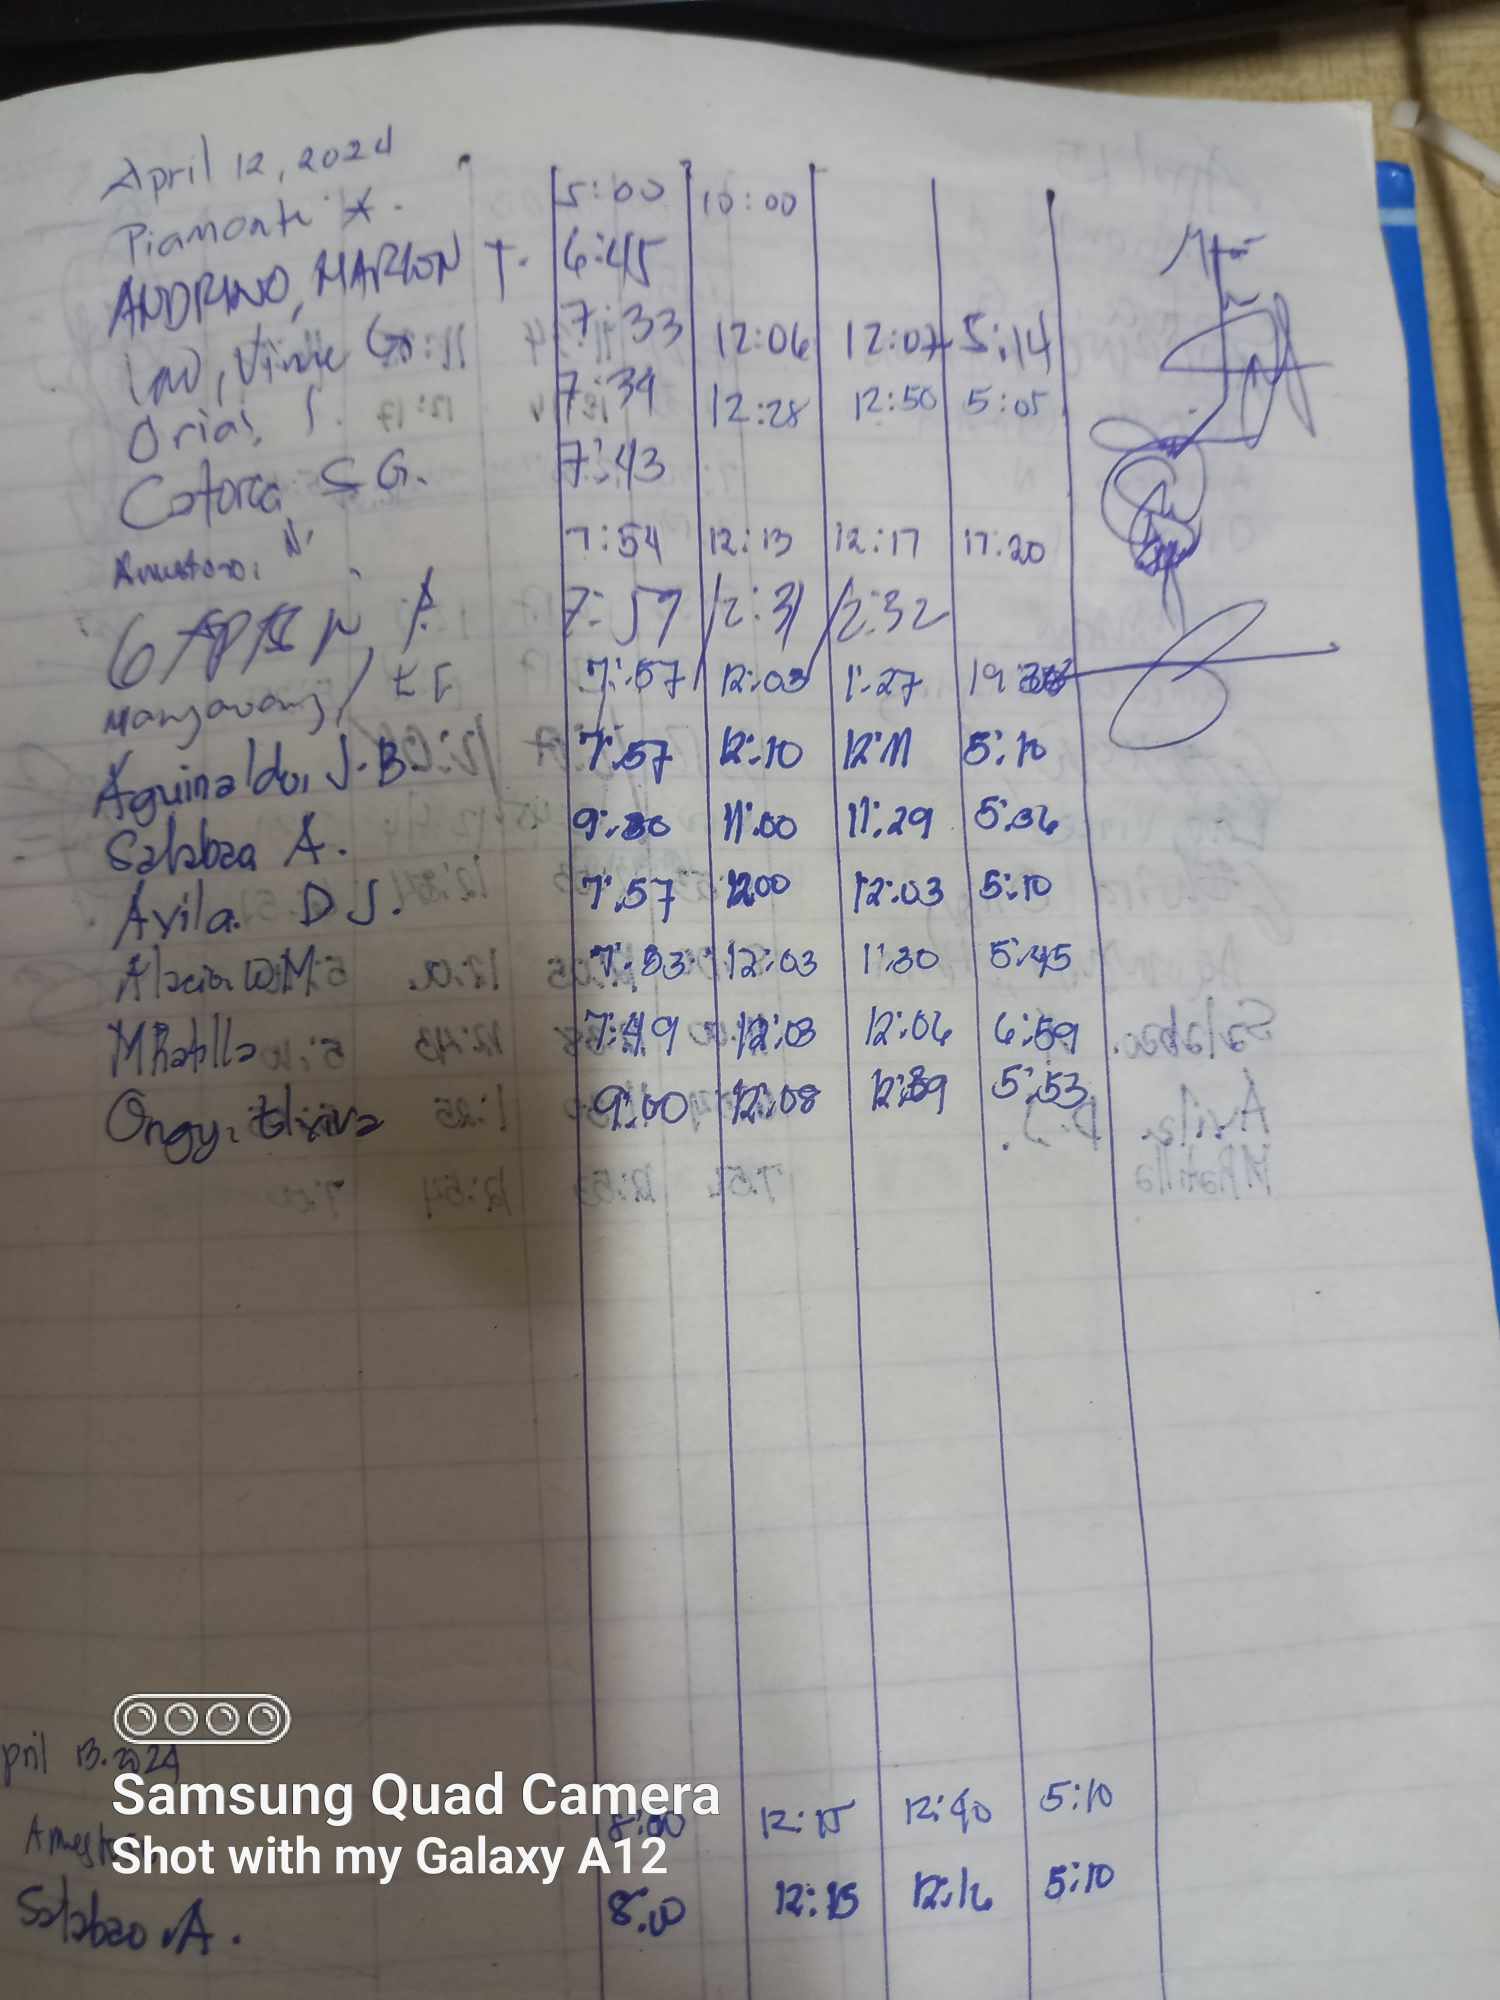 April 12, 2024
Piamonte 5:00 10:00
ANDRINO, MARLON T. 6:45
Vince G. 7:33 12:06 12:07 5:14
Orias, J. 7:34 12:28 12:50 5:05
Catorce, S G. 7:43
Amestoso, N. 7:54 12:13 12:17 17:20
7:57 12:31 12:32
7:57 12:03 1:27
Aguinaldo, J.B. 7:57 12:10 12:11 5:10
Salabao A. 9:30 11:00 11:29 5:36
Avila. D J. 7:57 12:00 12:03 5:10
7:53 12:03 1:30 5:45
MRatilla 7:49 12:03 12:06 6:59
Ongy, 9:00 12:08 12:39 5:53
pril 13. 2024
8:00 12:15 12:40 5:10
Salabao A. 8:00 12:15 12:16 5:10
Samsung Quad Camera
Shot with my Galaxy A12